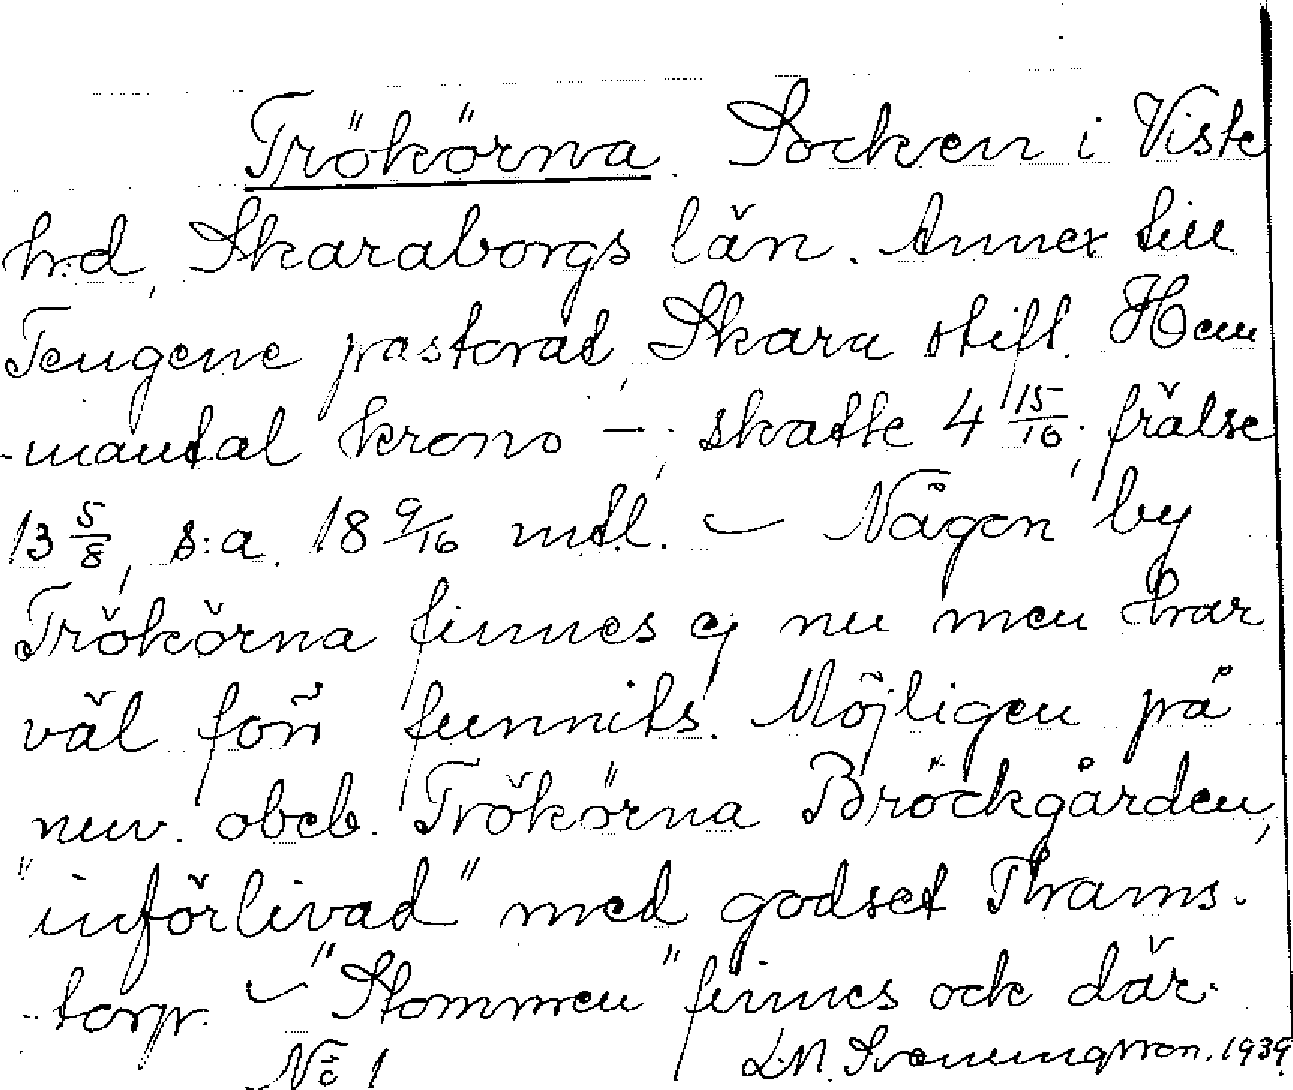 Trökörna Socken i Viste
h:d, Skaraborgs län. Annex till
Tengene pastorat, Skara stift. Hem
-mantal krono –, skatte 4 15/16, frälse
13 5/8, s:a 18 9/16 mtl. – Någon by
Trökörna finnes ej nu men har
väl förr funnits. Möjligen på
nuv. obeb. Trökörna Bröckgården,
"införlivad" med godset Thams-
torp. – "Stommen" finnes ock där.
No 1 L.M. Svenungsson. 1939.